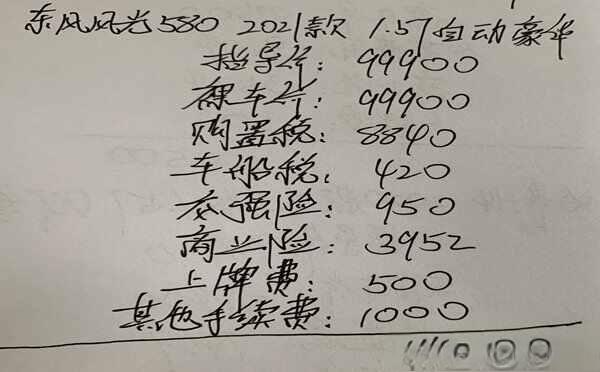 东风风光580 2021款 1.5T自动豪华
指导价：99900
裸车价：99900
购置税：8840
车船税：420
交强险：950
商业险：3952
上牌费：500
其他手续费：1000